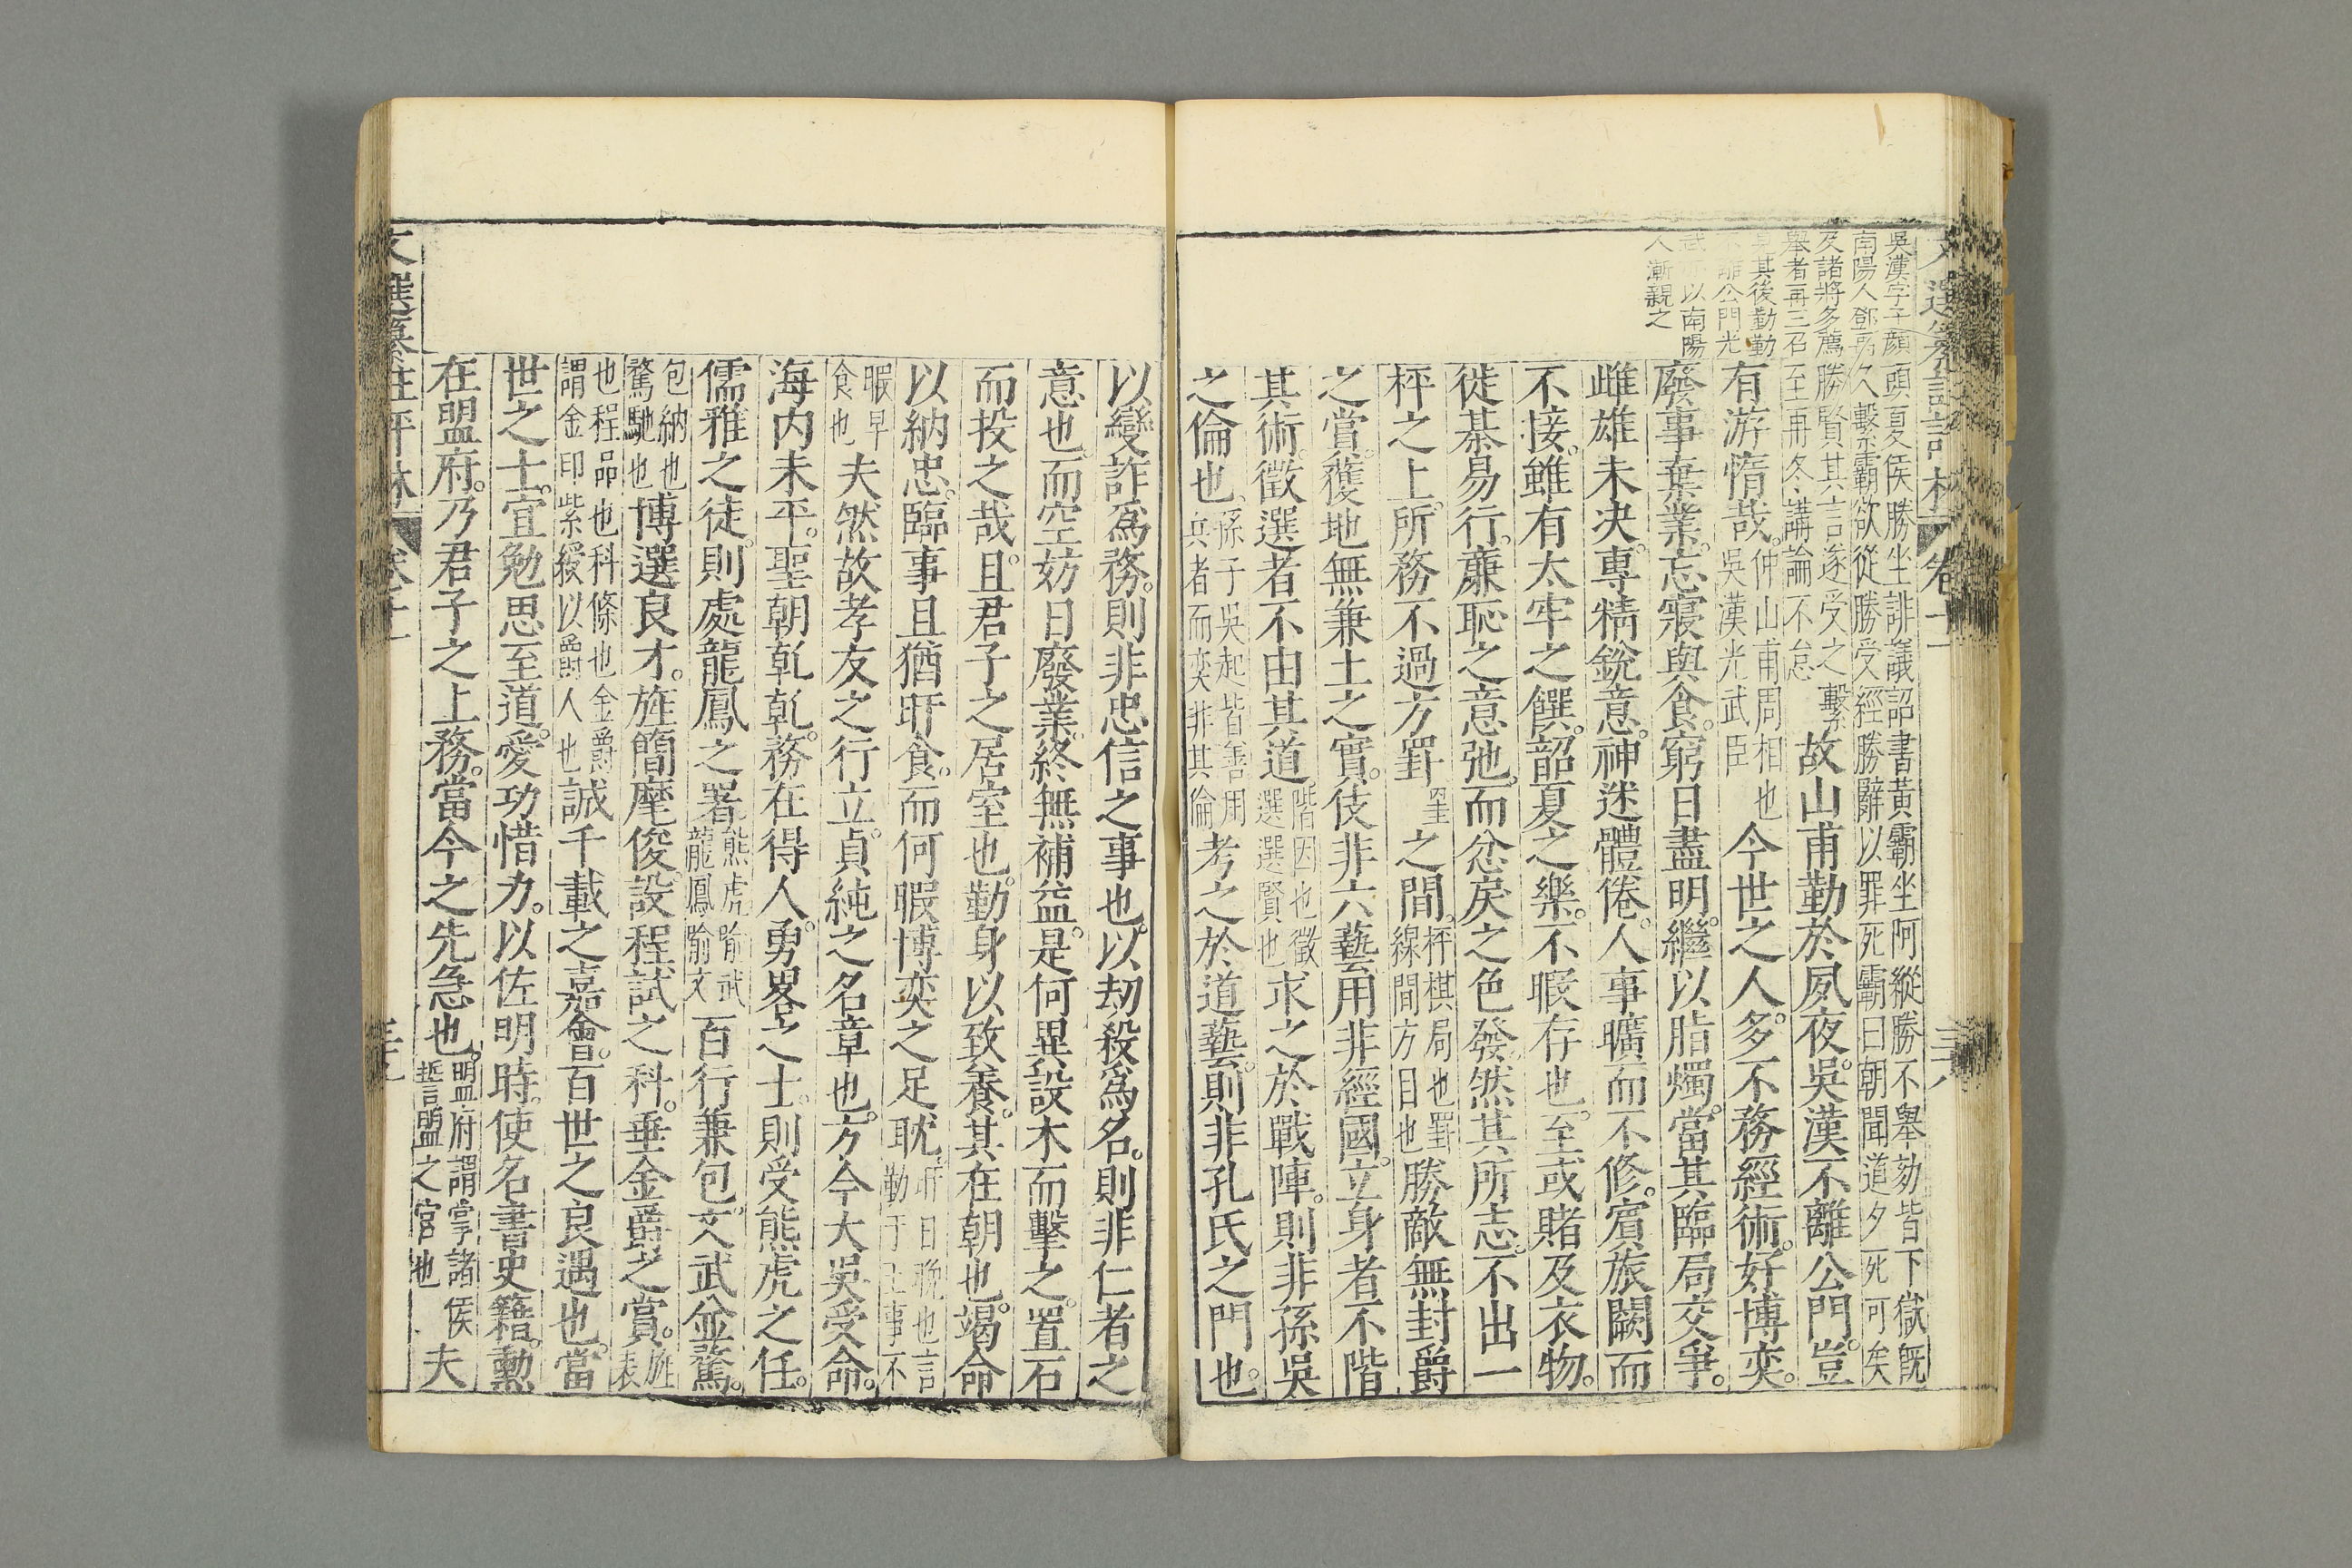 吳漢字子顏
南陽人鄧禹
及諸將多薦
舉者再三召
見其後勤勤
不離公門光
武亦以南陽
人漸親之
頭夏侯勝坐誹議詔書黃霸坐阿縱勝不舉劾皆下獄旣
久繫霸欲從勝受經勝辭以罪死霸曰朝聞道夕死可矣
勝賢其言遂受之繫
至再冬講論不怠
故山甫勤於夙夜吳漢不離公門豈
有游惰哉
仲山甫周相也
吳漢光武臣
今世之人多不務經術好博奕
廢事棄業忘寢與食窮日盡明繼以脂燭當其臨局交爭
雌雄未決專精銳意神迷體倦人事曠而不修賓旅闕而
不接雖有太牢之饌韶夏之樂不暇存也至或賭及衣物
徙棊易行廉恥之意弛而忿戾之色發然其所志不出一
枰之上所務不過方罫
之間
枰棋局也罫
線間方目也
勝敵無封爵
之賞獲地無兼土之實伎非六藝用非經國立身者不階
其術徵選者不由其道
階因也徵
選選賢也
求之於戰陣則非孫吳
之倫也
孫子吳起皆善用
兵者而奕非其倫
考之於道藝則非孔氏之門也
文選纂註評林 卷十一 三十八
以變詐爲務則非忠信之事也以劫殺爲名則非仁者之
意也而空妨日廢業終無補益是何異設木而擊之置石
而投之哉且君子之居室也勤身以致養其在朝也竭命
以納忠臨事且猶旰食而何暇博奕之足耽
旰日晚也言
勤于王事不
暇早
食也
夫然故孝友之行立貞純之名章也方今大吳受命
海內未平聖朝乾乾務在得人勇畧之士則受熊虎之任
儒雅之徒則處龍鳳之署
熊虎喻武
龍鳳喻文
百行兼包文武並騖
包納也
騖馳也
博選良才旌簡髦俊設程試之科垂金爵之賞
旌
表
也程品也科條也金爵
謂金印紫綬以爵人也
誠千載之嘉會百世之良遇也當
世之士宜勉思至道愛功惜力以佐明時使名書史籍勳
在盟府乃君子之上務當今之先急也
盟府謂掌諸侯
誓盟之宮也
夫
文選纂註評林 卷十一 三十九